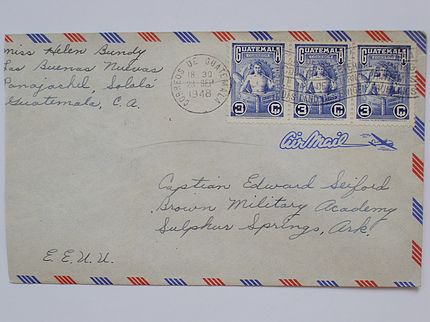 Miss Helen Bundy
Las Buenas Nuevas
Panajachel, Solola
Guatemala, C.A.
CORREOS DE GUATEMALA
18 30
SEP
1948
GUATEMALA
GUATEMALA
GUATEMALA
3 3
3 3
3 3
Air Mail
Captian Edward Seiford
Brown Military Academy
Sulphur Springs, Ark.
E.E.U.U.